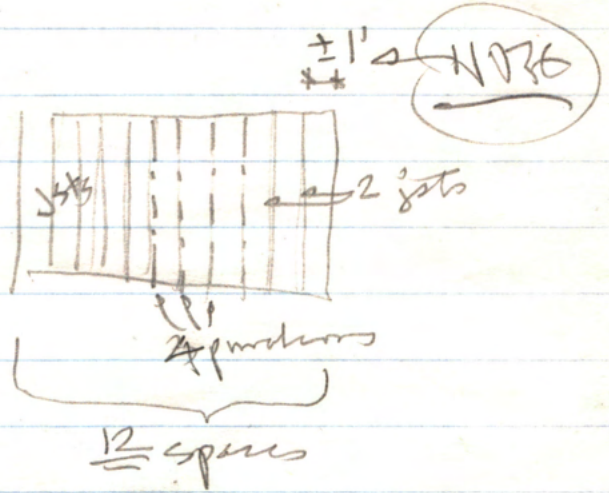 ±1'
NOTE
jsts
2 jsts
4 purlins
12 spaces